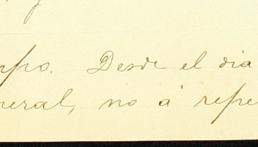 mpo. Desde el dia
neral, no á repe